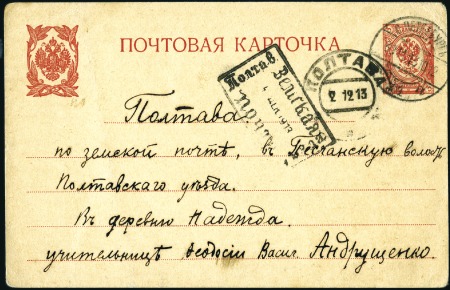 ПОЧТОВАЯ КАРТОЧКА
Полтав.
Земская
почта
ПОЛТАВА
2 12 13
Полтава
по земской почтѣ, въ Песчанскую волость
Полтавскаго уѣзда.
Въ деревню Надежда.
учительницѣ Ѳеодосіи Васил. Андрущенко